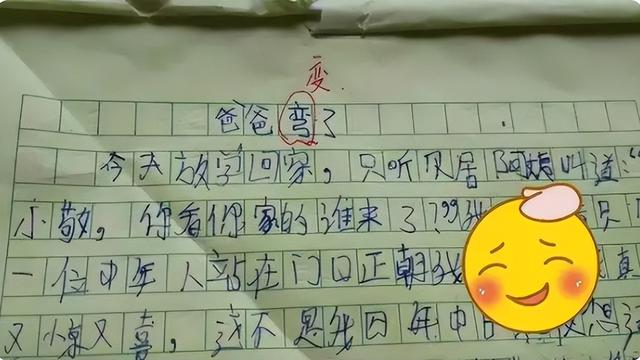 变
爸爸弯了
今天放学回家，只听居阿姨叫道：“
小敬，你看你家的谁来了？”我
一位中年人站在门口正朝我真
又惊又喜，这不是我